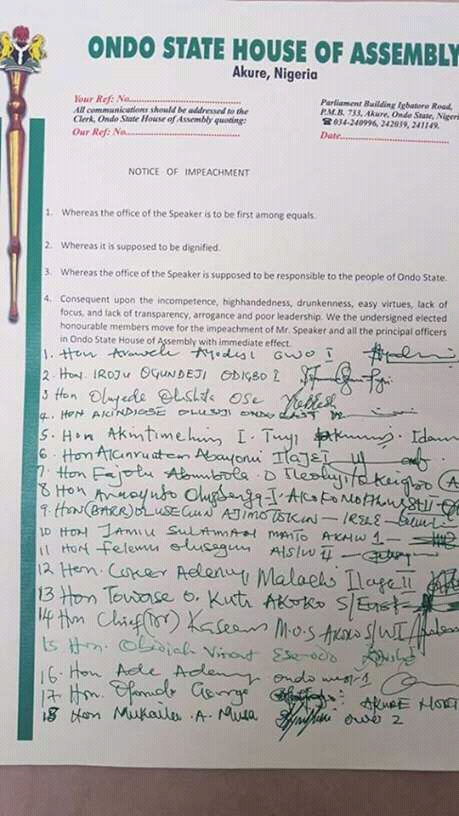 ONDO STATE HOUSE OF ASSEMBLY
Akure, Nigeria
Your Ref: No
All communications should be addressed to the
Clerk, Ondo State House of Assembly quoting:
Our Ref: No
Parliament Building Igbatoro Road,
P.M.B. 733, Akure, Ondo State, Nigeri
☎ 034-240996, 242039, 241149.
Date
NOTICE OF IMPEACHMENT
1. Whereas the office of the Speaker is to be first among equals.
2. Whereas it is supposed to be dignified.
3. Whereas the office of the Speaker is supposed to be responsible to the people of Ondo State.
4. Consequent upon the incompetence, highhandedness, drunkenness, easy virtues, lack of
focus, and lack of transparency, arrogance and poor leadership. We the undersigned elected
honourable members move for the impeachment of Mr. Speaker and all the principal officers
in Ondo State House of Assembly with immediate effect.
1. Hon Ayodeji OWO I
2. Hon. IROJU OGUNDEJI ODIGBO I
3 Hon Olugede Olushita OSE
4. HON AKINDIOSE OLUSOJI ONDO EAST
5. Hon Akintimehin I. Tuyi Idan
6. Hon Akinruntan Abayomi ILAJE I
7. Hon Fajolu Abimbola. D Ileoluji/Okeigbo
8 Hon Araoyinbo Olugbenga I. AKOKO NORTHWEST II
9. HON(BARR) OLUSEGUN AJIMOTOKIN — IRELE
10 HON JAMIU SULAIMAN MAITO AKNW 1
11 HON Felemu Olusegun A/S/W II
12 Hon. Coker Adeniyi Malachi Ilaje II
13 Hon Towase O. Kuti AKOKO S/East
14 Hon Chief (Tor) Kaseem M.O.S AKOKO S/WI
15 Hon. Obidiah Vincent Ese-Odo
16. Hon Ade Adeniyi ondo west 1
17. Hon. George AKURE NORT
18 Hon Mukaila. A. Musa OWO 2